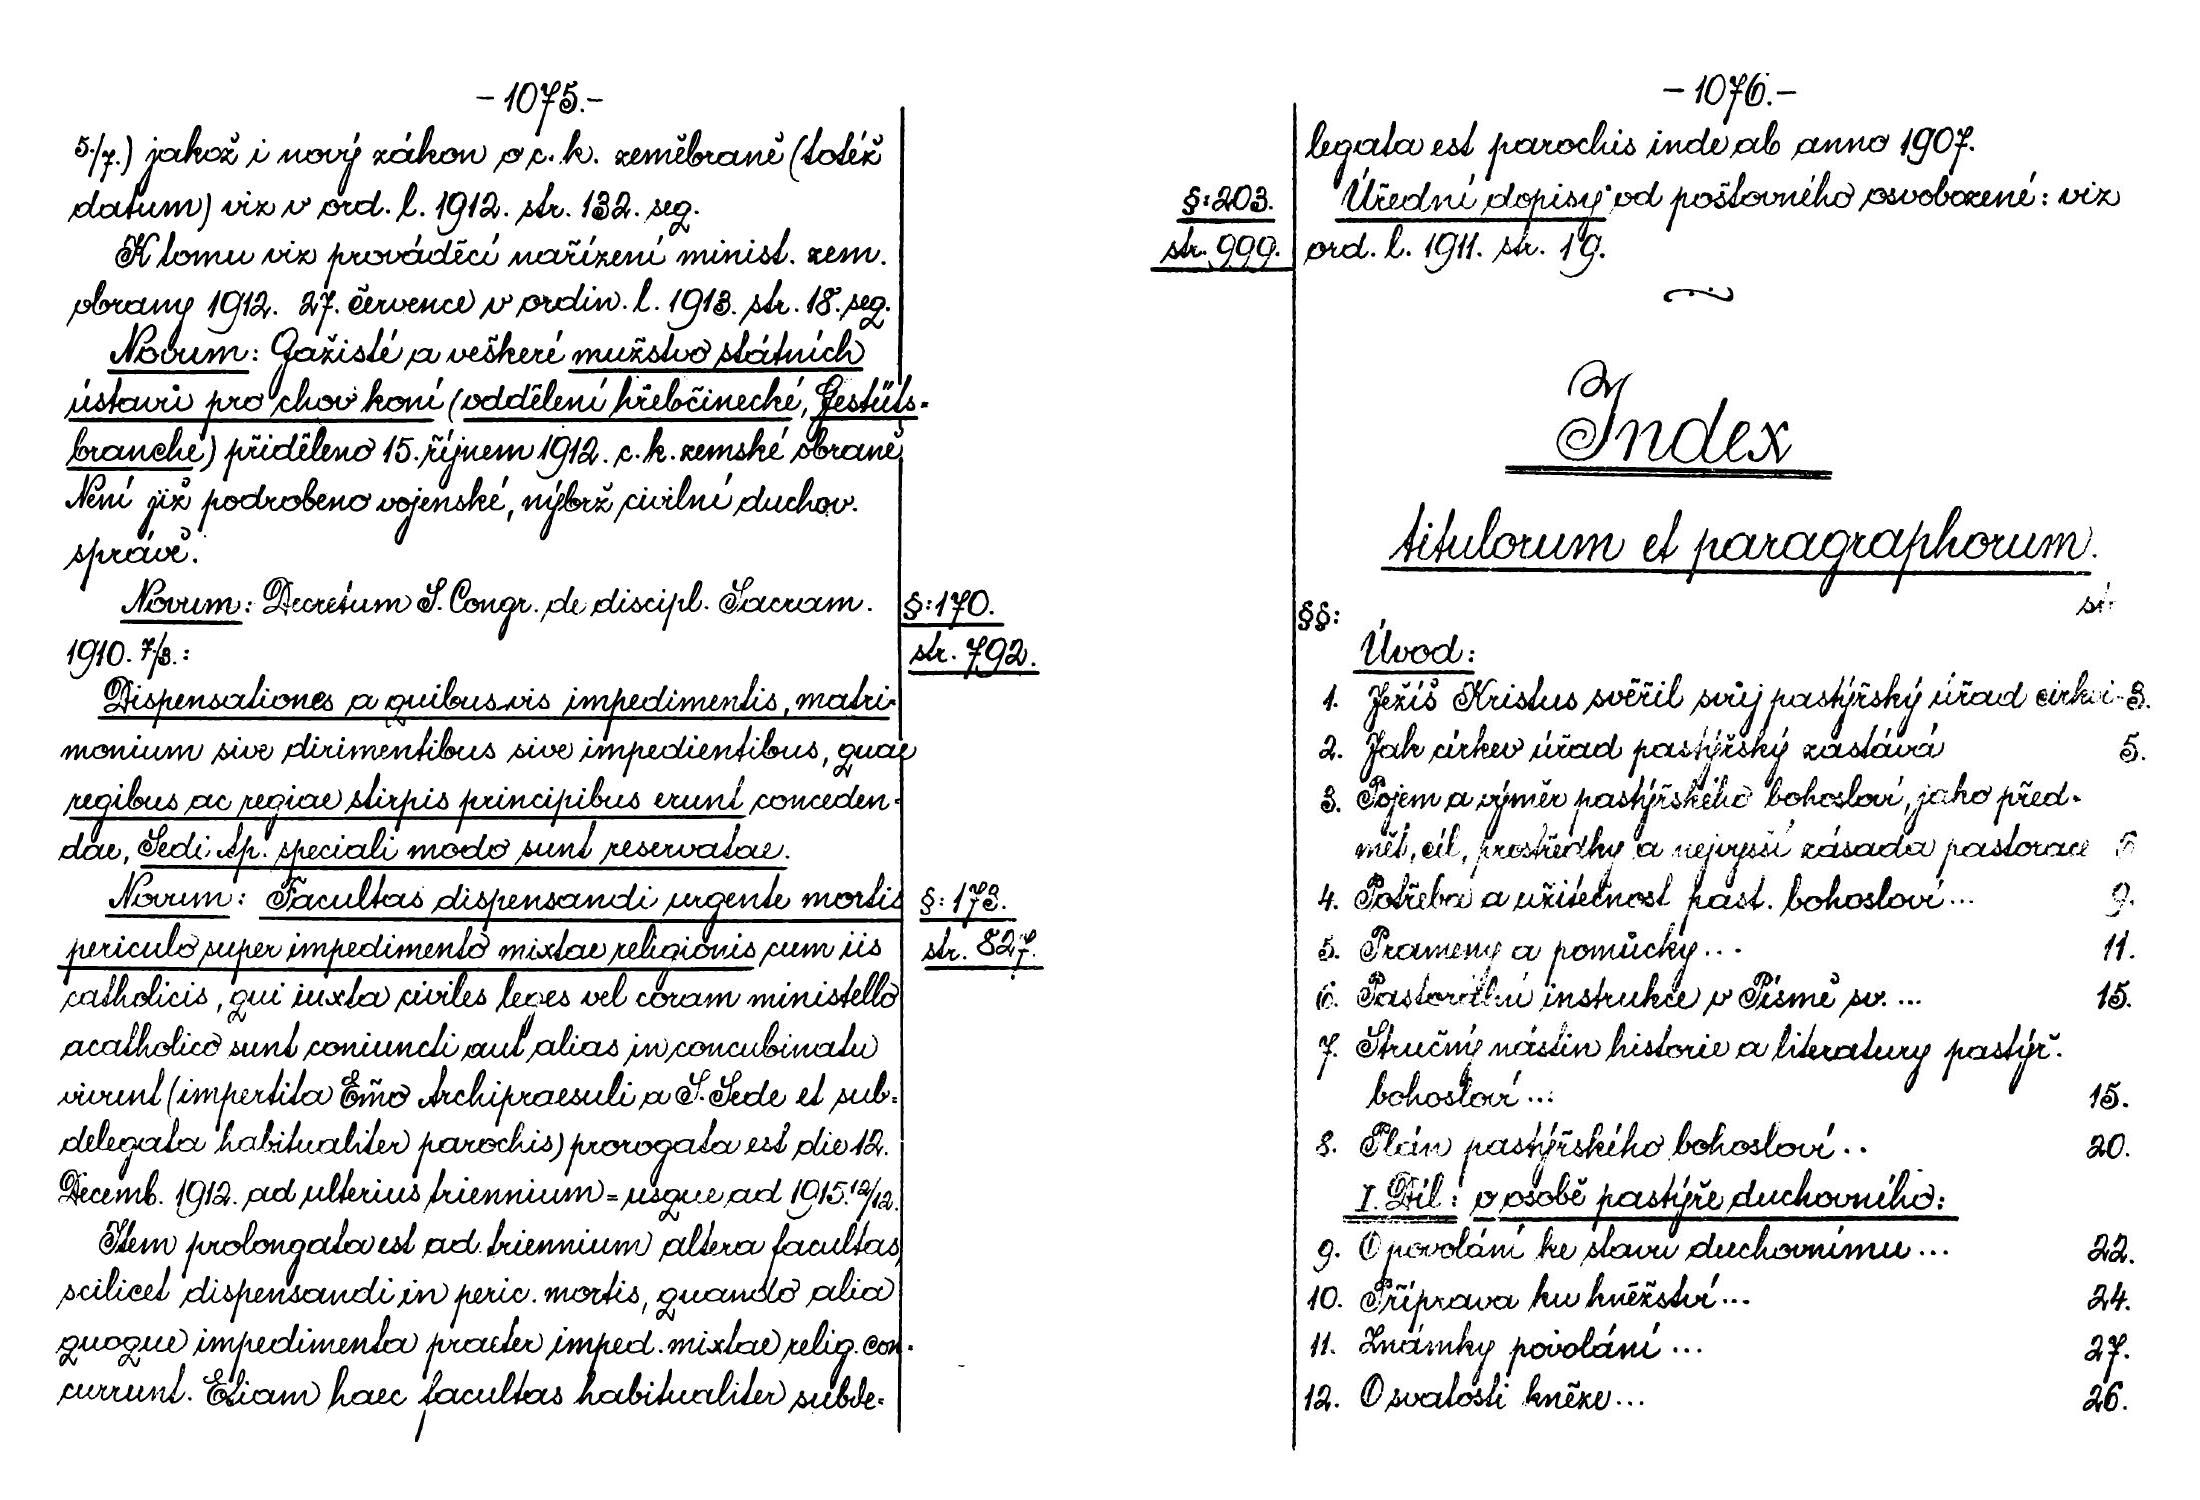 - 1075. -
5./7.) jakož i nový zákon o c. k. zeměbraně (totéž
datum) viz v ord. l. 1912. str. 132. seg.
K tomu viz prováděcí nařízení minist. zem.
obrany 1912. 27. července v ordin. l. 1913. str. 18. seg.
Novum: Gažisté a veškeré mužstvo státních
ústavů pro chov koní (oddělení hřebčinecké, Gestüts-
branche) přiděleno 15. říjnem 1912. c. k. zemské obraně.
Není již podrobeno vojenské, nýbrž civilní duchov.
správě.
Novum: Decretum S. Congr. de discipl. Sacram. §: 170.
1910. 7/3.: str. 792.
Dispensationes a quibusvis impedimentis, matri-
monium sive dirimentibus sive impedientibus, quae
regibus ac regiae stirpis principibus erunt conceden-
dae, Sedi Ap. speciali modo sunt reservatae.
Novum: Facultas dispensandi urgente mortis §: 173.
periculo super impedimento mixtae religionis cum iis str. 827.
catholicis, qui iuxta civiles leges vel coram ministello
acatholico sunt coniuncti aut alias in concubinatu
vivunt (impertita Em̃o Archipraesuli a S. Sede et sub-
delegata habitualiter parochis) prorogata est die 12.
Decemb. 1912. ad ulterius triennium = usque ad 1915. 12/12.
Item prolongata est ad triennium altera facultas,
scilicet dispensandi in peric. mortis, quando alia
quoque impedimenta praeter imped. mixtae relig. con-
currunt. Etiam haec facultas habitualiter subde-
- 1076. -
legata est parochis inde ab anno 1907.
§: 203. Úřední dopisy od poštovného osvobozené: viz
str. 999. ord. l. 1911. str. 19.
Index
titulorum et paragraphorum.
§§: str.
Úvod:
1. Ježíš Kristus svěřil svůj pastýřský úřad církvi 3.
2. Jak církev úřad pastýřský zastává 5.
3. Pojem a výměr pastýřského bohosloví, jako před-
mět, cíl, prostředky a nejvyšší zásada pastorace
4. Potřeba a užitečnost past. bohosloví... 9.
5. Prameny a pomůcky... 11.
6. Pastorální instrukce v Písmě sv. ... 15.
7. Stručný nástin historie a literatury pastýř.
bohosloví... 15.
8. Plán pastýřského bohosloví.. 20.
I. Díl: o osobě pastýře duchovního:
9. O povolání ke stavu duchovnímu... 22.
10. Příprava ku kněžství... 24.
11. Známky povolání ... 27.
12. O svatosti kněze... 26.